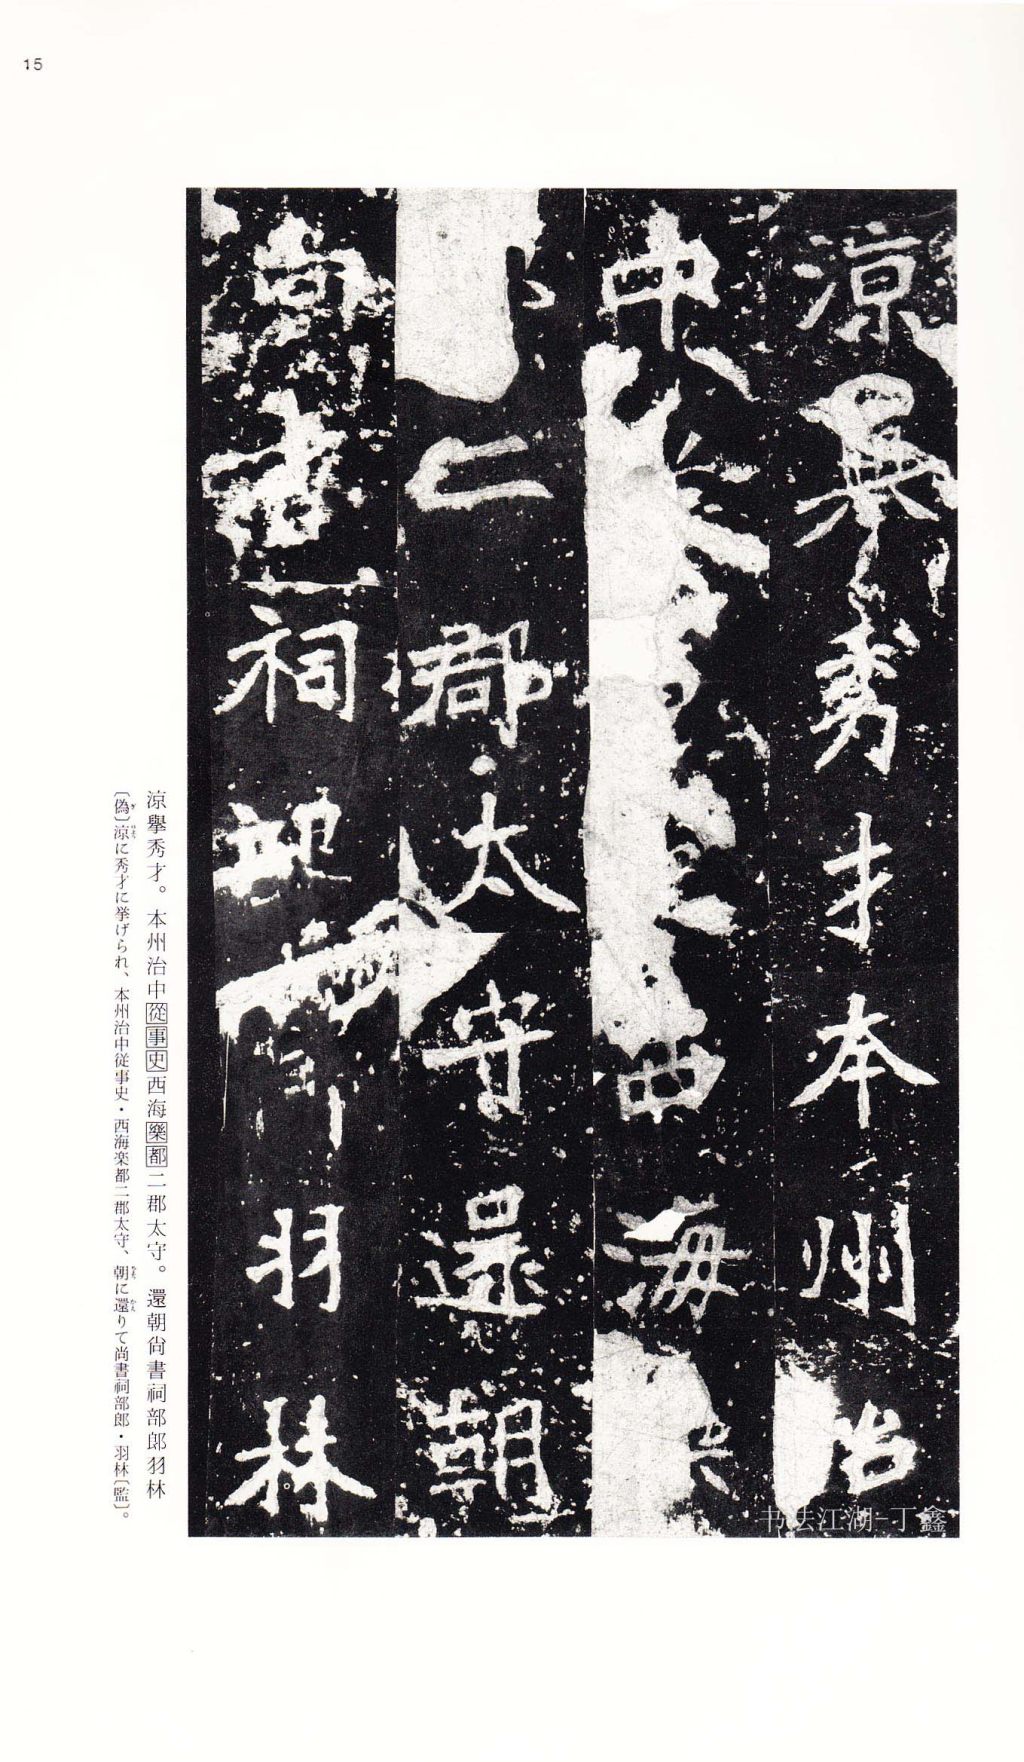 15
涼舉秀才本州治
中西海樂
二郡太守還朝
尚書祠部郎羽林
涼擧秀才。本州治中從事史西海樂都二郡太守。還朝尙書祠部郎羽林
〔偽〕涼に秀才に挙げられ、本州治中従事史・西海楽都二郡太守、朝に還りて尚書祠部郎・羽林〔監〕。
书法江湖-丁鑫